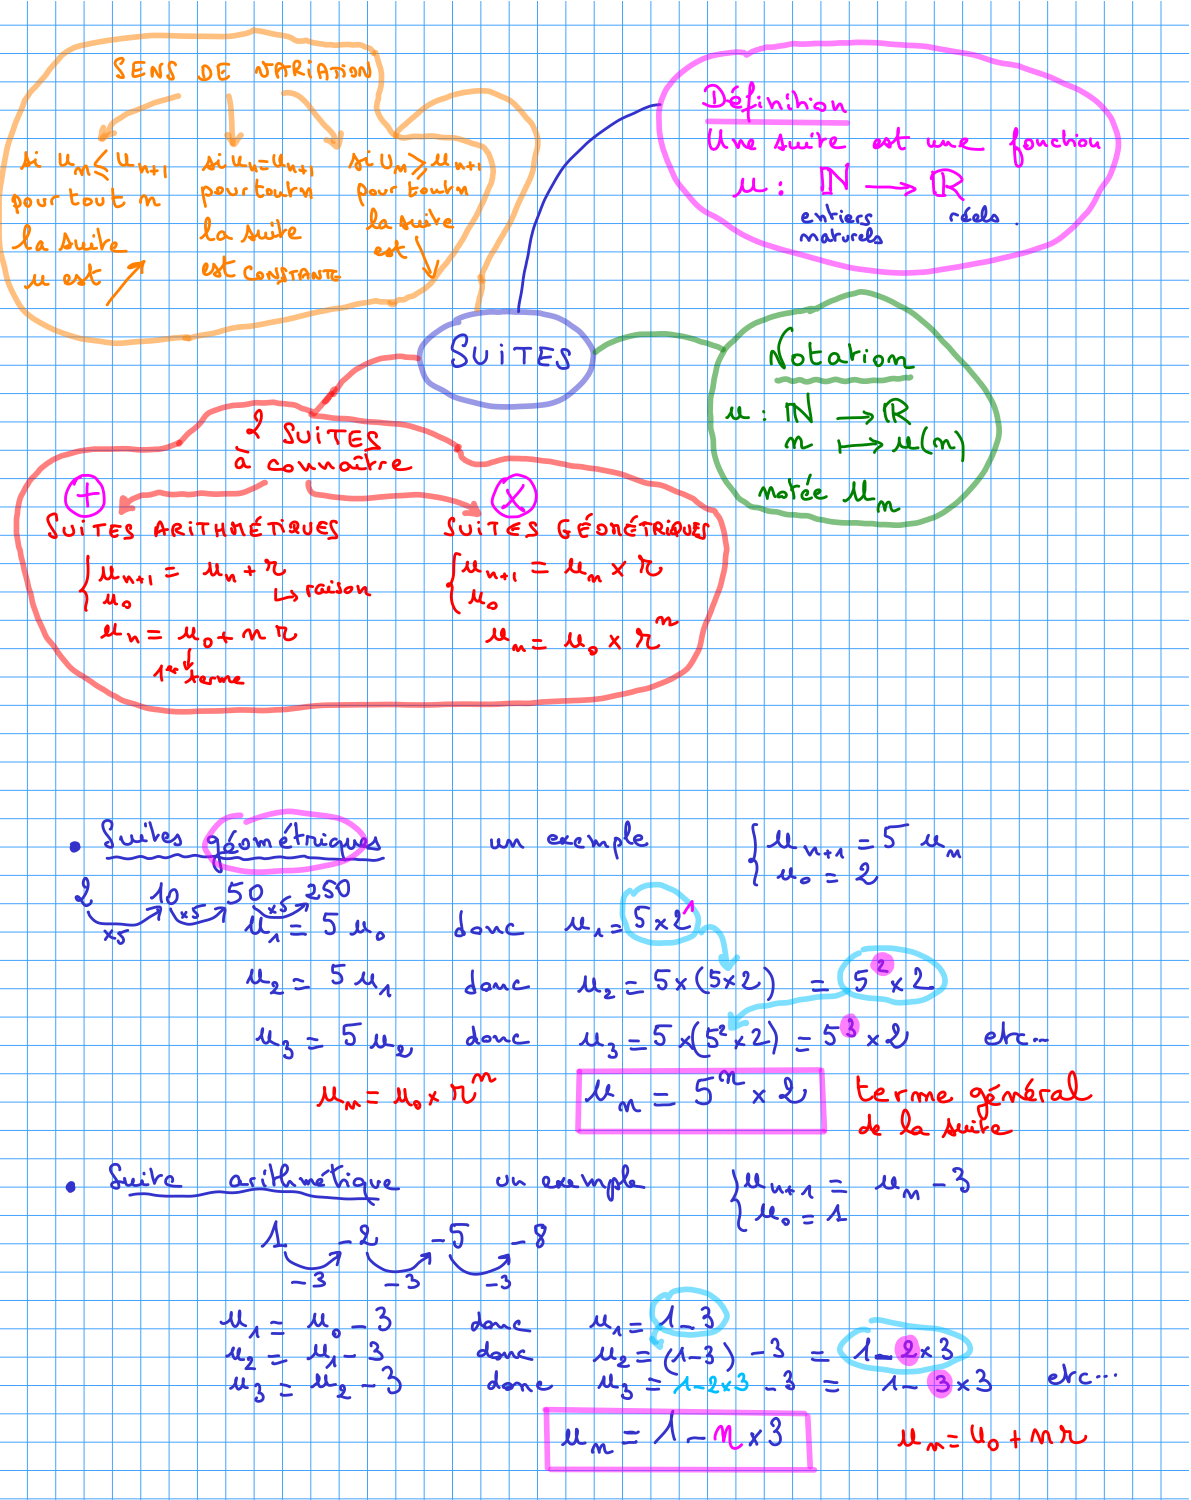 SENS DE VARIATION
si uₙ ⩽ uₙ₊₁
pour tout n
la suite
u est ↗
si uₙ = uₙ₊₁
pour tout n
la suite
est CONSTANTE
si uₙ ⩾ uₙ₊₁
pour tout n
la suite
est ↘
Définition
Une suite est une fonction
u : ℕ ⟶ ℝ
entiers naturels réels.
SUITES
Notation
u : ℕ ⟶ ℝ
n ⟼ u(n)
notée uₙ
2 SUITES
à connaître
+
SUITES ARITHMÉTIQUES
{ uₙ₊₁ = uₙ + r
↳ raison
u₀
uₙ = u₀ + n r
↓
1er terme
×
SUITES GÉOMÉTRIQUES
{ uₙ₊₁ = uₙ × r
u₀
uₙ = u₀ × rⁿ
• Suites géométriques un exemple { uₙ₊₁ = 5 uₙ
u₀ = 2
2 10 50 250
×5 ×5 ×5
u₁ = 5 u₀ donc u₁ = 5 × 2¹
u₂ = 5 u₁ donc u₂ = 5 × (5 × 2) = 5² × 2
u₃ = 5 u₂ donc u₃ = 5 × (5² × 2) = 5³ × 2 etc...
uₙ = u₀ × rⁿ uₙ = 5ⁿ × 2 terme général
de la suite
• Suite arithmétique un exemple { uₙ₊₁ = uₙ - 3
u₀ = 1
1 -2 -5 -8
-3 -3 -3
u₁ = u₀ - 3 donc u₁ = 1 - 3
u₂ = u₁ - 3 donc u₂ = (1-3) - 3 = 1 - 2 × 3
u₃ = u₂ - 3 donc u₃ = 1-2×3 - 3 = 1 - 3 × 3 etc...
uₙ = 1 - n × 3 uₙ = u₀ + n r